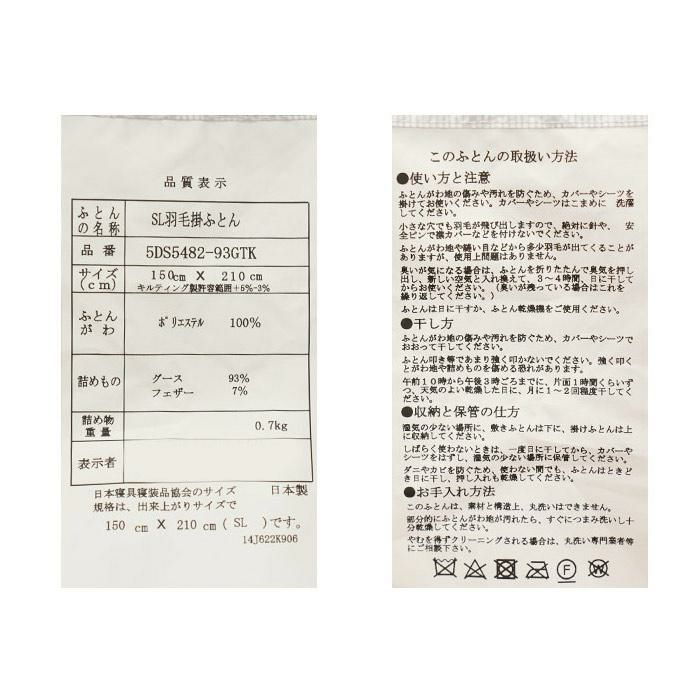 品質表示
ふとんの名称 SL羽毛掛ふとん
品番 5DS5482-93GTK
サイズ(cm) 150cm X 210cm
キルティング製許容範囲+6%-3%
ふとんがわ ポリエステル 100%
詰めもの グース 93%
フェザー 7%
詰め物重量 0.7kg
表示者
日本寝具寝装品協会のサイズ 日本製
規格は、出来上がりサイズで
150 cm X 210 cm ( SL ) です。
14J622K906
このふとんの取扱い方法
●使い方と注意
ふとんがわ地の傷みや汚れを防ぐため、カバーやシーツを
掛けてお使いください。カバーやシーツはこまめに 洗濯
してください。
小さな穴でも羽毛が飛び出しますので、絶対に針や、 安
全ピンで襟カバーなどを付けないでください。
ふとんがわ地や縫い目などから多少羽毛が出てくることが
ありますが、使用上問題はありません。
臭いが気になる場合は、ふとんを折りたたんで臭気を押し
出し、新しい空気と入れ換えて、3~4時間、日に干して
からお使いください。(臭いが残っている場合はこれを
繰り返してください。)
ふとんは日に干すか、ふとん乾燥機をご使用ください。
●干し方
ふとんがわ地の傷みや汚れを防ぐため、カバーやシーツで
おおって干してください。
ふとん叩き等であまり強く叩かないでください。強く叩く
とがわ地や詰めものを傷める恐れがあります。
午前10時から午後3時ごろまでに、片面1時間くらいず
つ、天気のよい乾燥した日に、月に1~2回程度干してく
ださい。
●収納と保管の仕方
湿気の少ない場所に、敷きふとんは下に、掛けふとんは上
に収納してください。
しばらく使わないときは、一度日に干してから、カバーや
シーツをはずし、湿気の少ない場所に保管してください。
ダニやカビを防ぐため、使わない間でも、ふとんはときど
き日に干し、押し入れも乾燥してください。
●お手入れ方法
このふとんは、素材と構造上、丸洗いはできません。
部分的にふとんがわ地が汚れたら、すぐにつまみ洗いし十
分乾燥してください。
やむを得ずクリーニングされる場合は、丸洗い専門業者等
にご相談下さい。
F
W